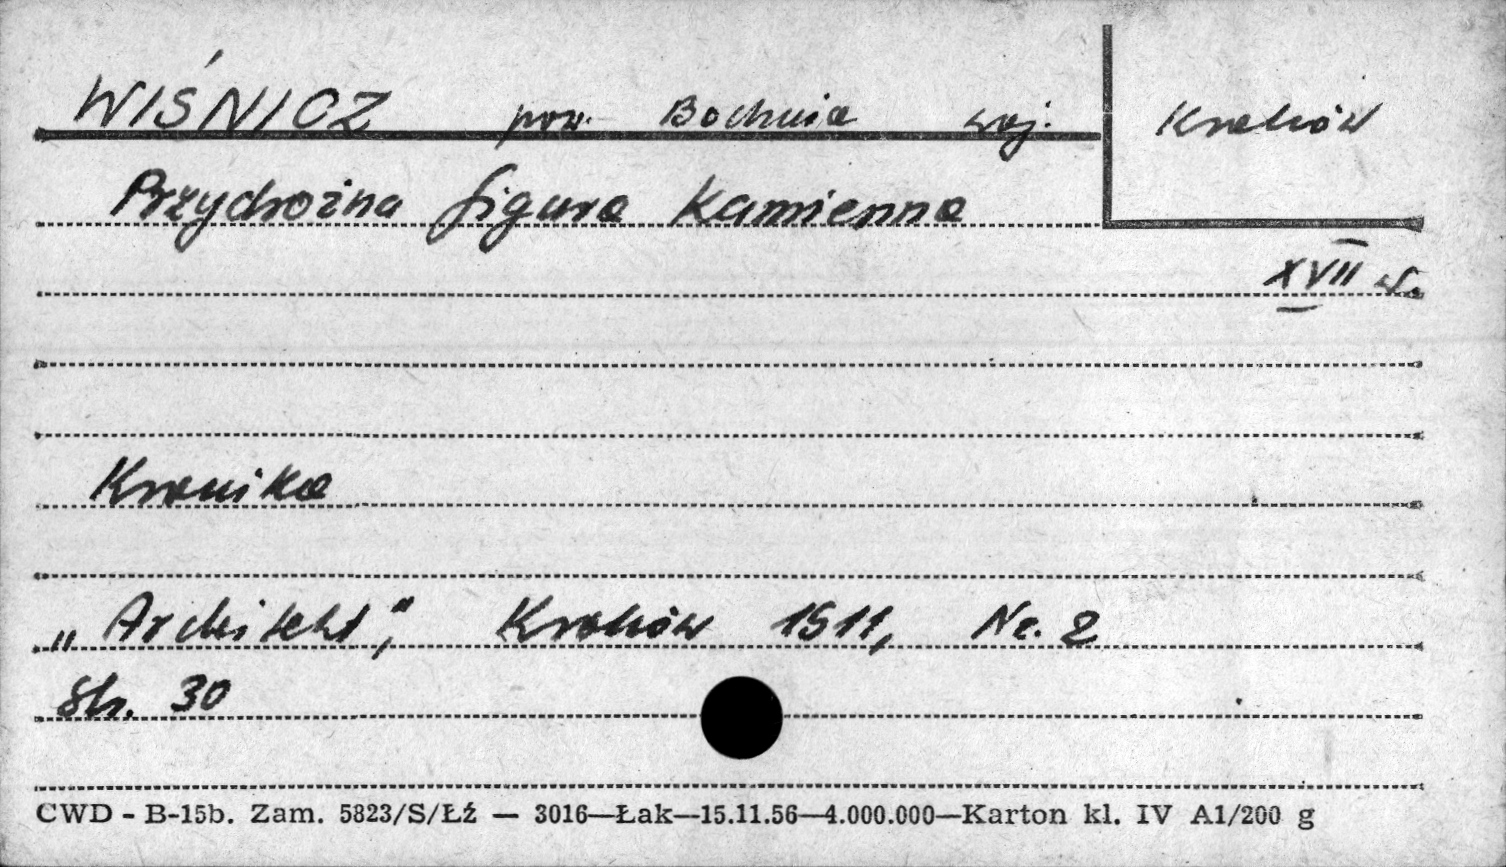 WIŚNICZ pow. Bochnia woj. Kraków
Przydrożna figura kamienna
XVII w.
Kronika
„Architekt”, Kraków 1911, Nr. 2
Str. 30
CWD - B-15b. Zam. 5823/S/Łź — 3016—Łak—15.11.56—4.000.000—Karton kl. IV A1/200 g